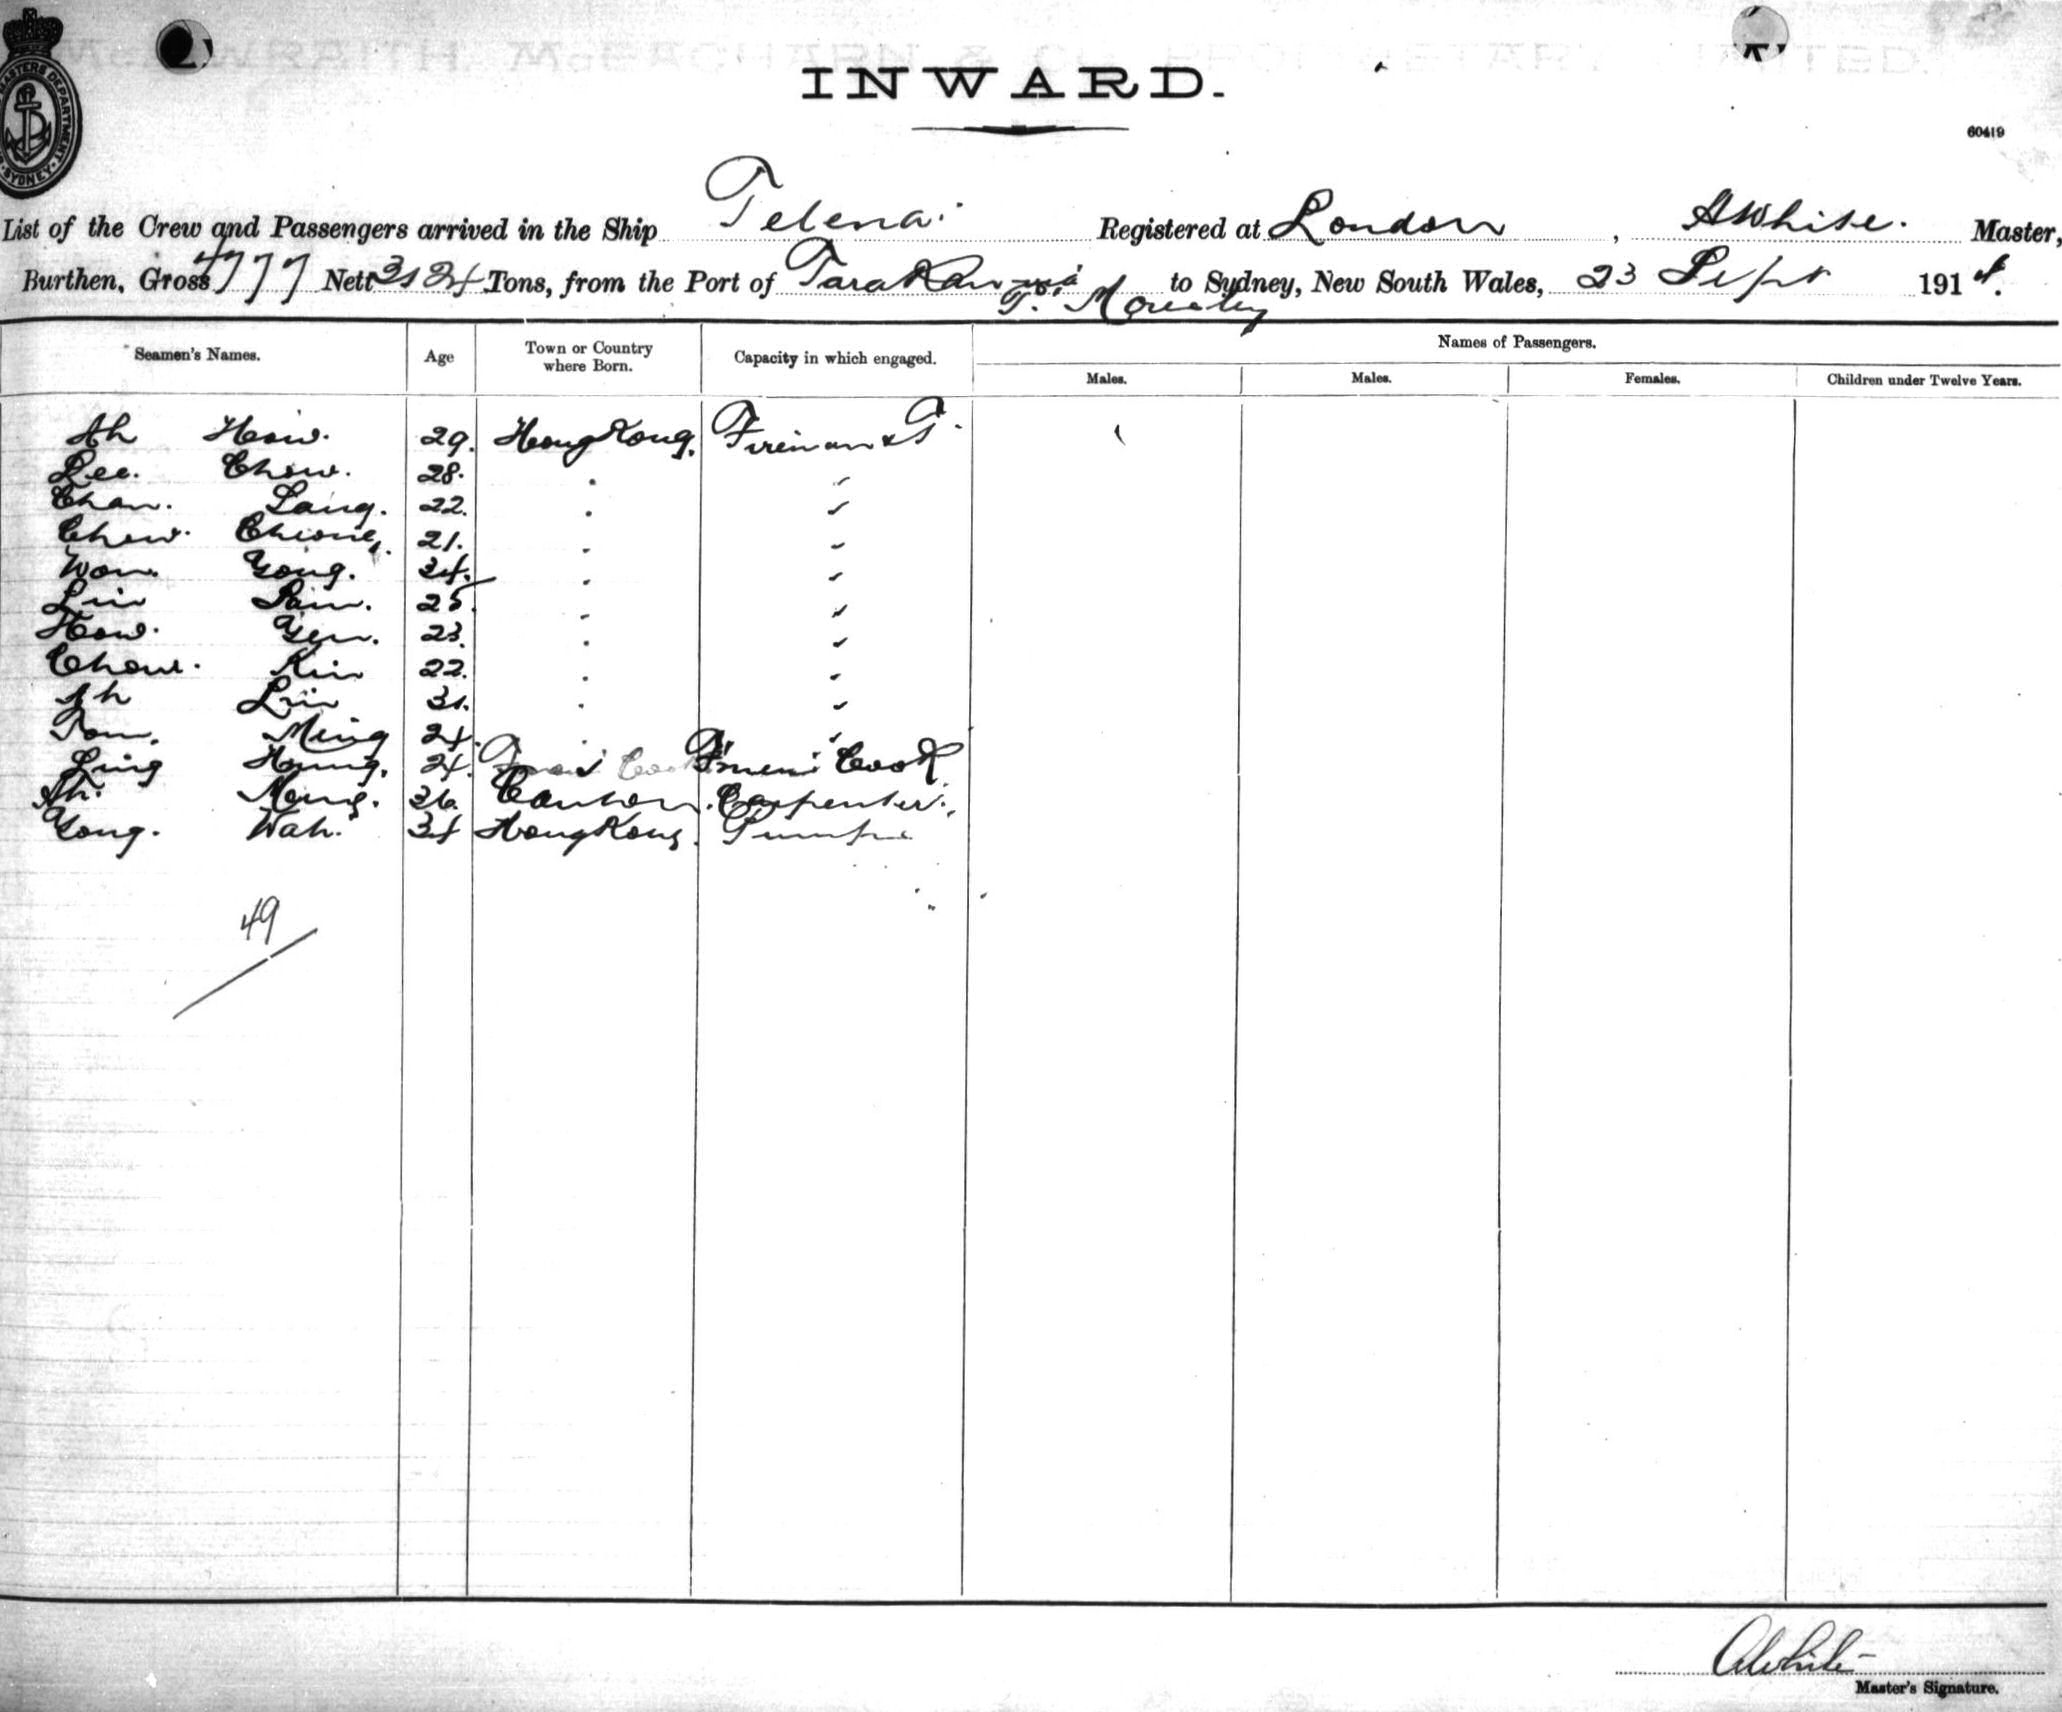 INWARD.
60419
MASTERS DEPARTMENT
SYDNEY
List of the Crew and Passengers arrived in the Ship Telena. Registered at London, A White. Master,
Burthen, Gross 4777 Nett 3124 Tons, from the Port of Tarakan via to Sydney, New South Wales, 23 Sept 1914.
Seamen's Names. Age Town or Country where Born. Capacity in which engaged. Names of Passengers.
Males. Males. Females. Children under Twelve Years.
Ah How. 29. Hong Kong. Fireman & T.
Lee. Chow. 28.
Chan. Lang. 22.
Chow. Cheong. 21.
Won. Yong. 34.
Lin Sam. 25.
How. Yen. 23.
Chow. Kin 22.
Ah Lin 31.
Tom. Ming 24.
Ling Hung. 24. Firemens Cook
Ah. Mung. 36. Canton. Carpenter.
Yong. Wah. 34 Hong Kong
49
A White
Master's Signature.